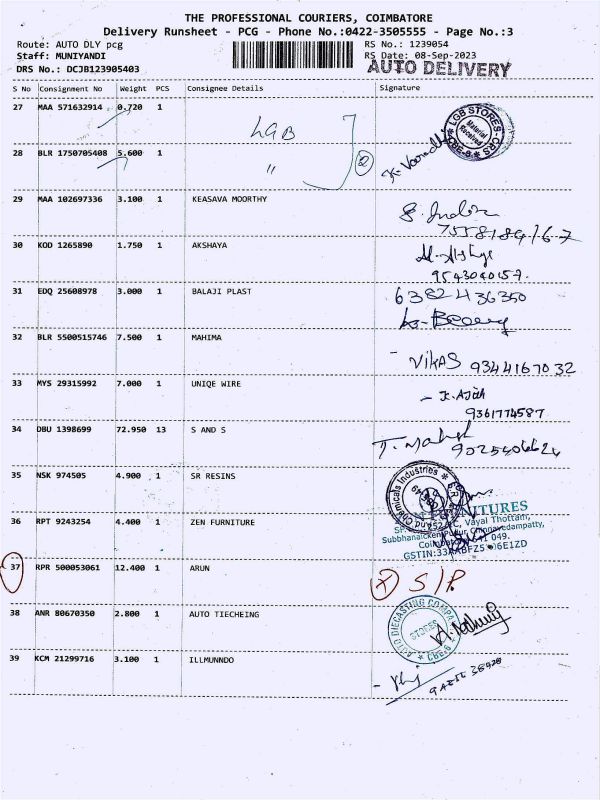 THE PROFESSIONAL COURIERS, COIMBATORE
Delivery Runsheet - PCG - Phone No.:0422-3505555 - Page No.:3
Route: AUTO DLY pcg RS No.: 1239054
Staff: MUNIYANDI RS Date: 08-Sep-2023
DRS No.: DCJB123905403 AUTO DELIVERY
S No Consignment No Weight PCS Consignee Details Signature
27 MAA 571632914 0.720 1 LGB LGB STORES-CRS Material Received CBE-6
28 BLR 1750705408 5.600 1 " 2
29 MAA 102697336 3.100 1 KEASAVA MOORTHY
30 KOD 1265890 1.750 1 AKSHAYA
31 EDQ 25608978 3.000 1 BALAJI PLAST 6382436350
32 BLR 5500515746 7.500 1 MAHIMA VIKAS 9344167032
33 MYS 29315992 7.000 1 UNIQE WIRE 9361774587
34 DBU 1398699 72.950 13 S AND S
35 NSK 974505 4.900 1 SR RESINS
36 RPT 9243254 4.400 1 ZEN FURNITURE
37 RPR 500053061 12.400 1 ARUN
38 ANR 80670350 2.800 1 AUTO TIECHEING AUTO DIECASTING STORES
39 KCM 21299716 3.100 1 ILLMUNNDO